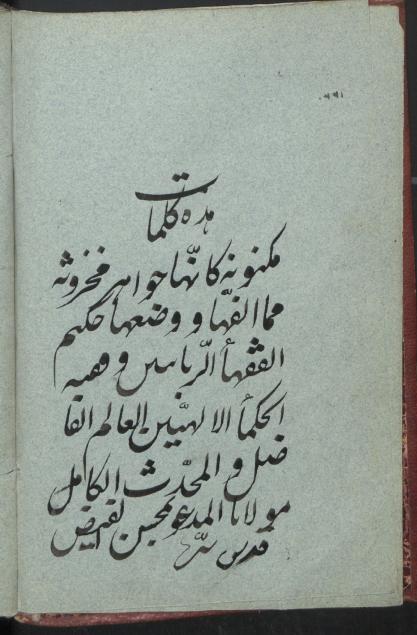 ۹۹۱
هذه کلمات
مکنونه کانّها جواهر مخزونه
مما الفّها و وضعها حکیم
الفقهأ الرّبانیین و فقیه
الحکمأ الالهییّن العالم الفا
ضل و المحدّث الکامل
مولانا المدعو بمحسن الفیض
قدس سرّه